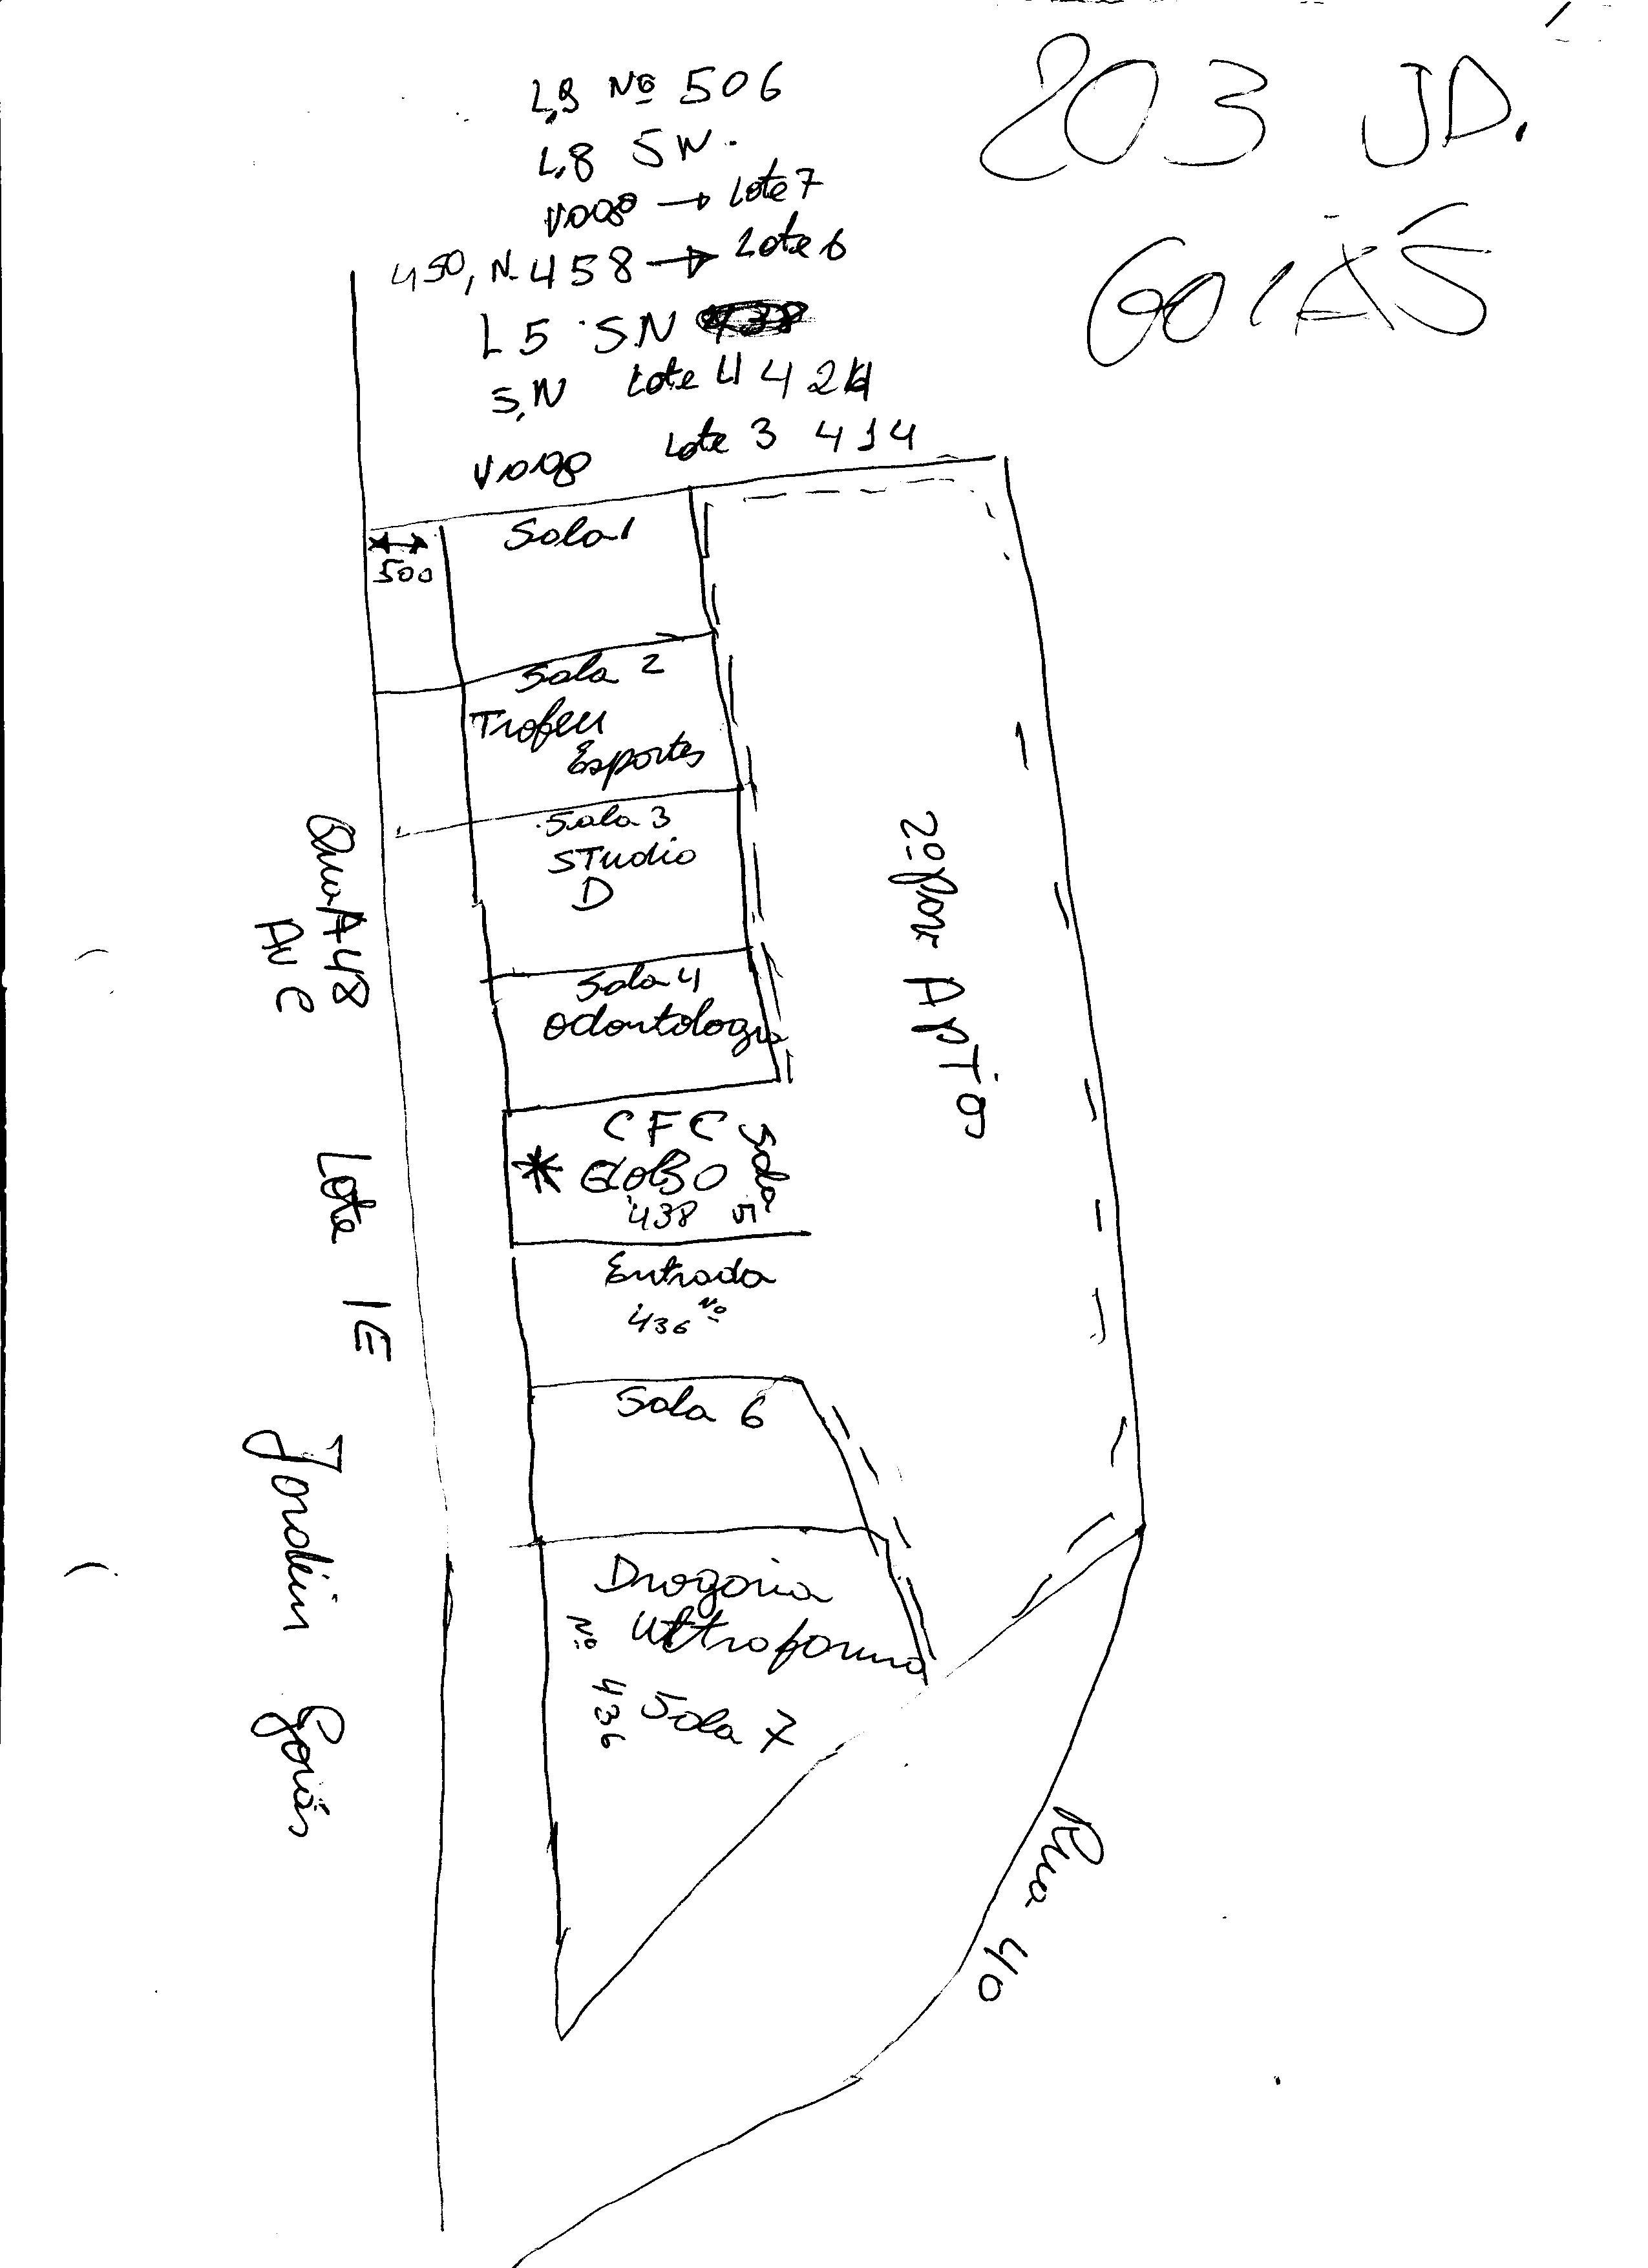 203 JD.
GOIÁS
L,9 Nº 506
L,8 SN.
Vago → Lote 7
450, N. 458 → Lote 6
L 5 SN
S,N Lote 4 424
Vago Lote 3 414
Sala 1
500
Sala 2
Trofeu
Esportes
Sala 3
STudio
D
Sala 4
Odontologia
CFC
GLOBO
438
Sala 5
Entrada
436 Nº
Sala 6
Drogaria
Ultrafarma
Nº 436
Sala 7
2º Pav APTos
A48
Av C
Lote 1E
Jardim Goiás
Rua 40